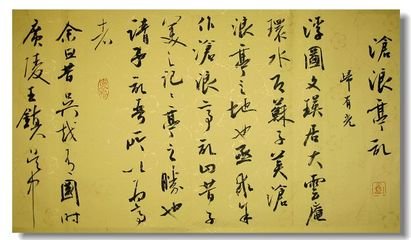 滄浪亭記
歸有光
浮圖文瑛居大雲庵
環水即蘇子美滄
浪亭之地也亟求余
作滄浪亭記曰昔子
美之記記亭之勝也
請子記吾所以為亭
者
余曰昔吳越有國時
廣陵王鎮吳中